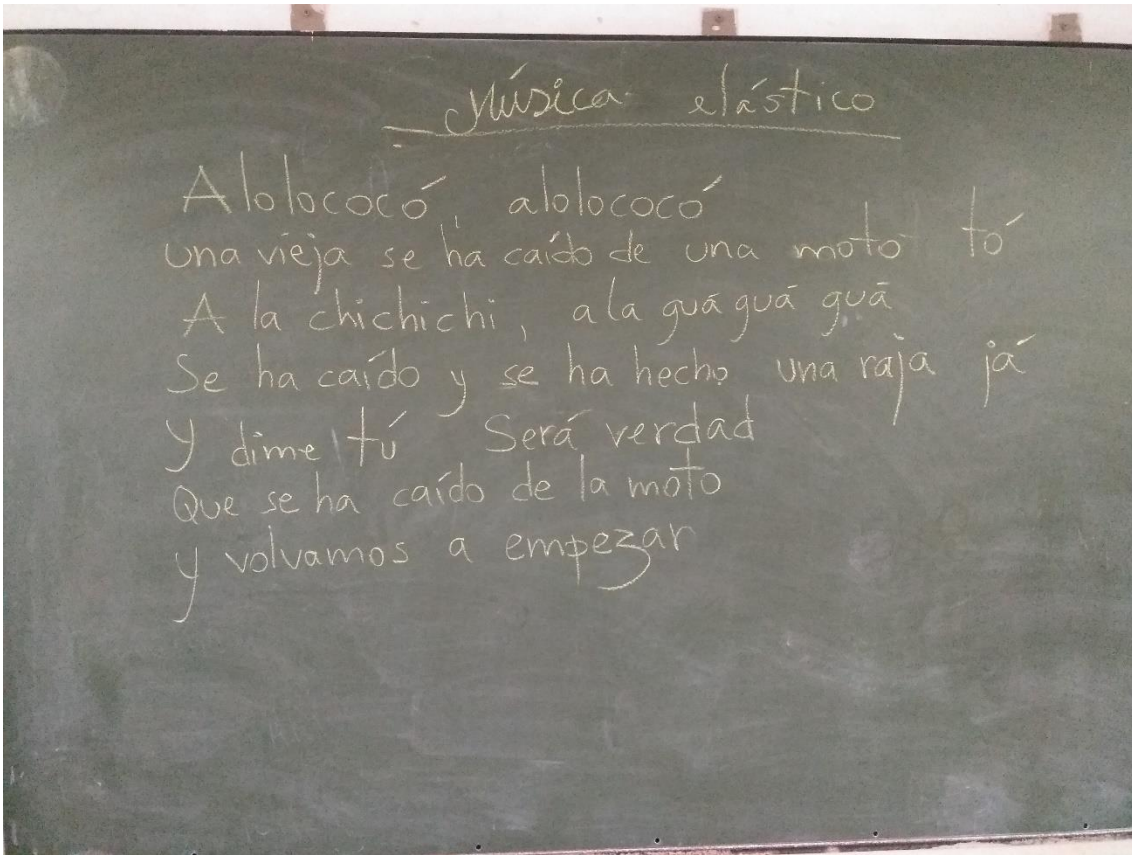 Música elástico
Alolococó, alolococó
una vieja se ha caído de una moto tó
A la chichichi, a la guá guá guá
Se ha caído y se ha hecho una raja já
Y dime tú Será verdad
Que se ha caído de la moto
y volvamos a empezar